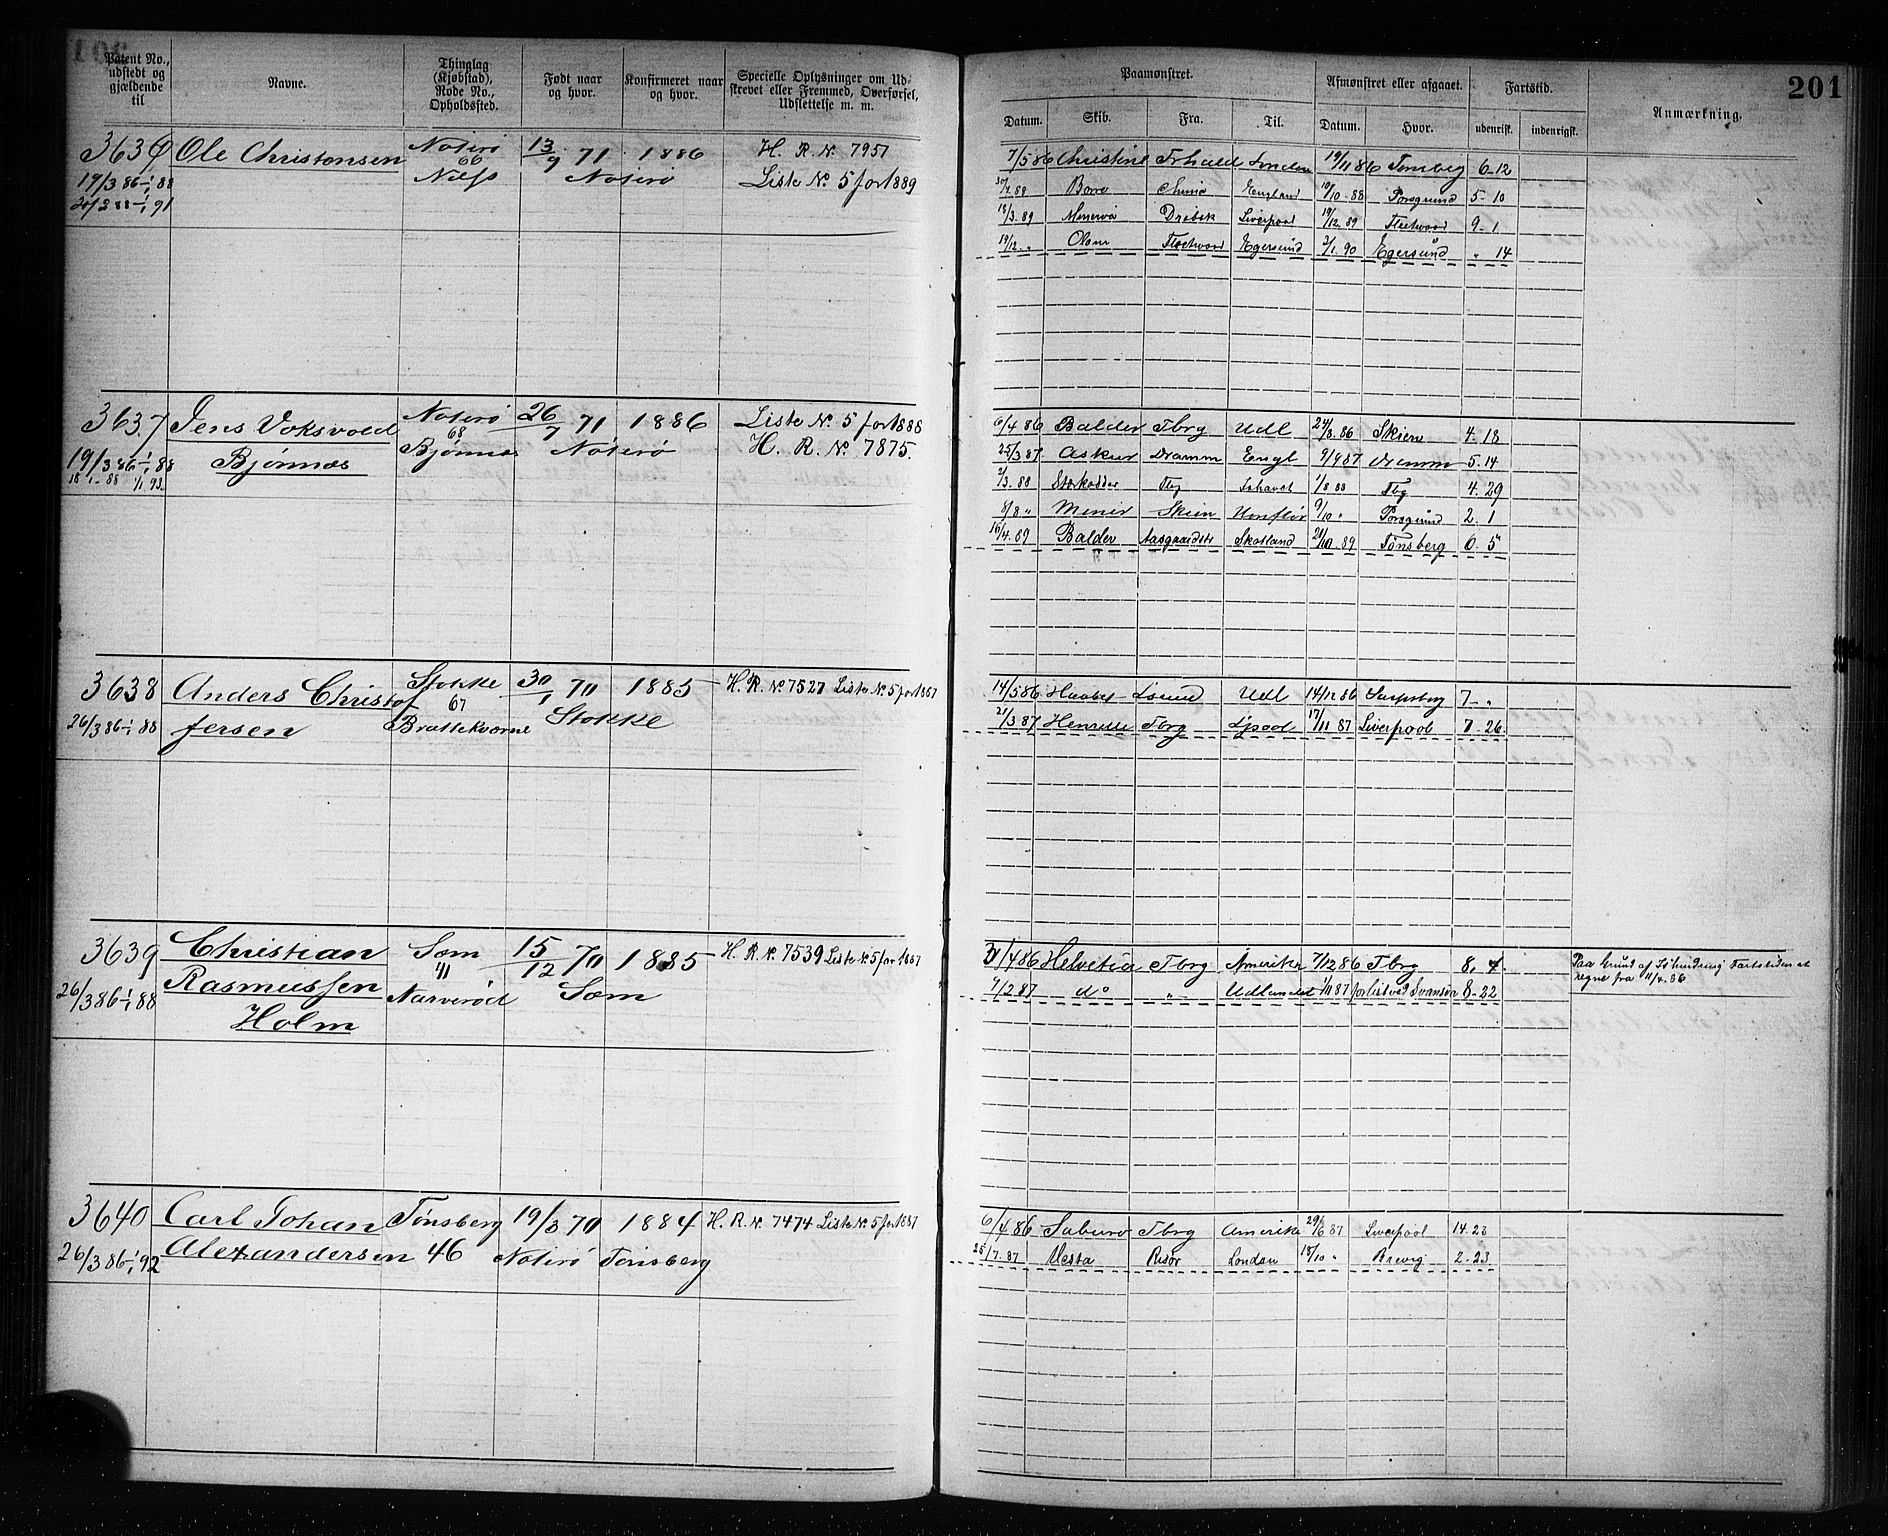 201
Patent No., udstedt og gjældende til
Navne.
Thinglag (Kjøbstad), Rode No., Opholdssted.
Født naar og hvor.
Konfirmeret naar og hvor.
Specielle Oplysninger om Udskrevet eller Fremmed, Overførsel, Udslettelse m. m.
Paamønstret.
Afmønstret eller afgaaet.
Fartstid.
Anmærkning.
Datum. Skib. Fra. Til. Datum. Hvor. udenrigsk. indenrigsk.
3636 Ole Christensen Nøterø 13/9 71 1886 H. R. No. 7951
19/3 86-1/1 88 66 Nøterø Liste No. 5 for 1889
20/2 88-1/1 91
7/5 86 Christine Frhald London 19/11 86 Tønsberg 6-12
89 England 10/10-88 Porsgrund 5-10
18/3.89 Minerva Drøbak Liverpool 19/12.89 Fleetwood 9-1
19/12 " Fleetwood Egersund 2/1.90 Egersund " 14
3637 Jens Voksvold Nøterø 26/7 71 1886 Liste No. 5 for 1888
19/3 86-1/1 88 Bjønnæs 68 Bjønnæs Nøterø H. R. No. 7875.
18/1-88 1/1 93
6/4 86 Balder Tbrg Udl 24/8.86 Skien 4.18
25/3 87 Askur Dramm Engl 9/9 87 Dramm 5.14
2/3.88 Tbg 1/8 88 Tbg 4.29
8/8 " Skien Honflør 9/10 " Porsgrund 2.1
16/4.89 Balder Aasgaardstr Skotland 21/10.89 Tønsberg 6.5
3638 Anders Christof Stokke 30/1 70 1885 H. R. No. 7527 Liste No. 5 for 1887
26/3 86-1/1 88 fersen 67 Brattekværne Stokke
14/5 86 Haabet Udl 14/12 86 Sarpsborg 7-"
21/3.87 Henriette Tbrg Lpool 17/11 87 Liverpool 7-26
3639 Christian Sæm 15/12 70 1885 H. R. No. 7539 Liste No. 5 for 1887
26/3 86-1/1 88 Rasmussen 41 Narverød Sæm
Holm
/4 86 Helvetia Tbrg Amerika 7/12 86 Tbrg 8.
7/2 87 do " Udlandet /11 87 forlist ved Svansea 8-22
Paa Grund af Fartstiden at
regne fra 11/4.86
3640 Carl Johan Tønsberg 19/3 70 1884 H. R. No. 7474 Liste No. 5 for 1887
26/3 86-1/1 92 Alexandersen 46 Nøterø Tønsberg
6/4 86 Tbrg Amerika 29/6 87 Liverpool 14.23
25/7.87 Vesta Risør London 18/10 " Brevig 2-23